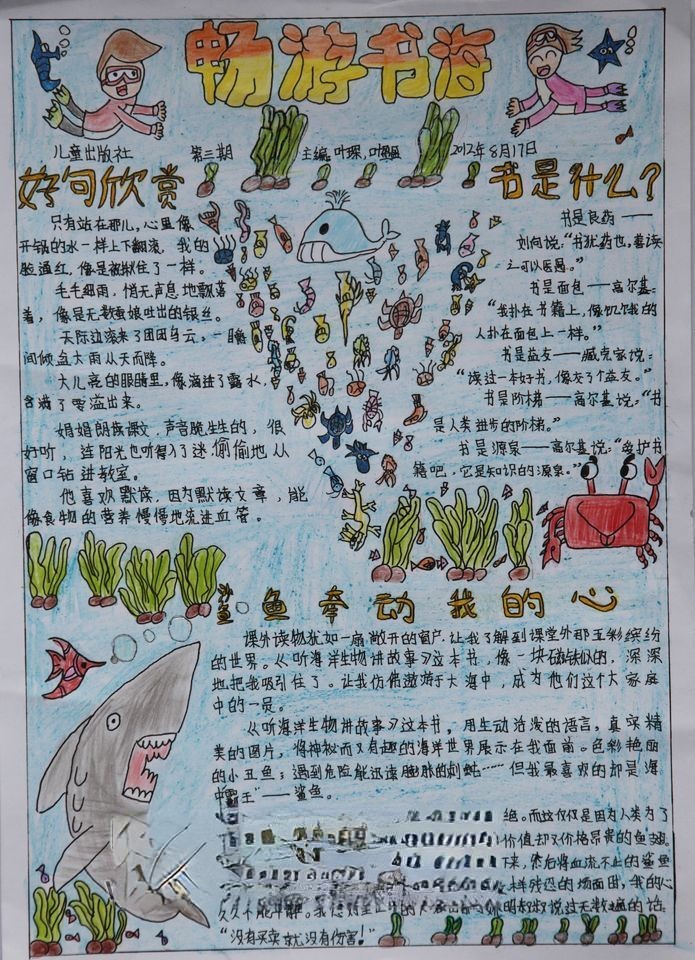 畅游书海
儿童出版社 第三期 主编：叶琛，叶 2012年8月17日
好句欣赏
只有站在那儿，心里像
开锅的水一样上下翻滚，我的
脸通红，像是被揪住了一样。
毛毛细雨，悄无声息地飘落
着，像是无数蚕娘吐出的银丝。
天际边滚来了团团乌云，一瞬
间倾盆大雨从天而降。
大儿亮的眼睛里，像滴进了露水，
含满了 溢出来。
娟娟朗读课文，声音脆生生的，很
好听，连阳光也听得入了迷偷偷地从
窗口钻进教室。
他喜欢默读，因为默读文章，能
像食物的营养慢慢地流进血管。
书是什么？
书是良药——
刘向说：“书犹药也，善读
之可以医愚。”
书是面包——高尔基：
“我扑在书籍上，像饥饿的
人扑在面包上一样。”
书是益友——臧克家说：
“读过一本好书，像交了个益友。”
书是阶梯——高尔基说：“书
是人类进步的阶梯。”
书是源泉——高尔基说：“爱护书
籍吧，它是知识的源泉。”
沙鱼鱼牵动我的心
课外读物犹如一扇敞开的窗户，让我了解到课堂外那五彩缤纷
的世界。《听海洋生物讲故事》这本书，像一块磁铁似的，深深
地把我吸引住了。让我仿佛遨游于大海中，成为他们这个大家庭
中的一员。
《听海洋生物讲故事》这本书，用生动活泼的语言，真实精
美的图片，将神秘而又有趣的海洋世界展示在我面前。色彩艳丽
的小丑鱼；遇到危险能迅速膨胀的刺鲀……但我最喜欢的却是海
“霸王”——鲨鱼。
绝。而这仅仅是因为人类为了
价值却又价格昂贵的鱼翅。
下来，然后将血流不止的鲨鱼
样残忍的场面困，我的心
久久不能平静。 明叔叔说过无数遍的话：
“没有买卖就没有伤害！”